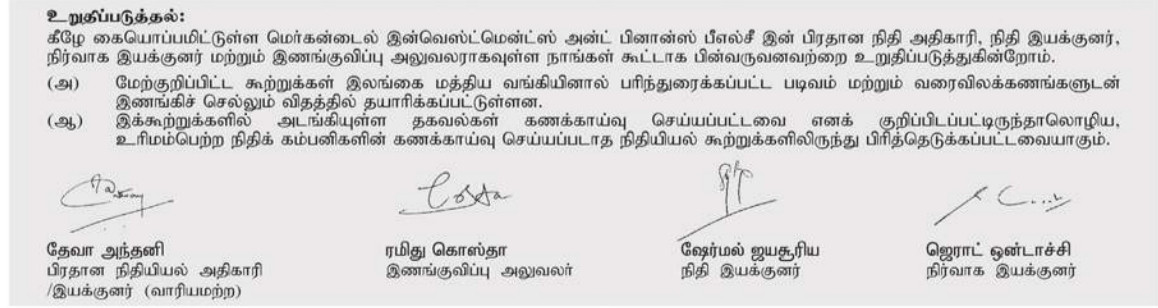 உறுதிப்படுத்தல்:
கீழே கையொப்பமிட்டுள்ள மெர்கன்டைல் இன்வெஸ்ட்மென்ட்ஸ் அன்ட் பினான்ஸ் பீஎல்சீ இன் பிரதான நிதி அதிகாரி, நிதி இயக்குனர்,
நிர்வாக இயக்குனர் மற்றும் இணங்குவிப்பு அலுவலராகவுள்ள நாங்கள் கூட்டாக பின்வருவனவற்றை உறுதிப்படுத்துகின்றோம்.
(அ) மேற்குறிப்பிட்ட கூற்றுக்கள் இலங்கை மத்திய வங்கியினால் பரிந்துரைக்கப்பட்ட படிவம் மற்றும் வரைவிலக்கணங்களுடன்
இணங்கிச் செல்லும் விதத்தில் தயாரிக்கப்பட்டுள்ளன.
(ஆ) இக்கூற்றுக்களில் அடங்கியுள்ள தகவல்கள் கணக்காய்வு செய்யப்பட்டவை எனக் குறிப்பிடப்பட்டிருந்தாலொழிய,
உரிமம்பெற்ற நிதிக் கம்பனிகளின் கணக்காய்வு செய்யப்படாத நிதியியல் கூற்றுக்களிலிருந்து பிரித்தெடுக்கப்பட்டவையாகும்.
Costa
தேவா அந்தனி ரமிது கொஸ்தா ஷேர்மல் ஜயசூரிய ஜெராட் ஒன்டாச்சி
பிரதான நிதியியல் அதிகாரி இணங்குவிப்பு அலுவலர் நிதி இயக்குனர் நிர்வாக இயக்குனர்
/இயக்குனர் (வாரியமற்ற)